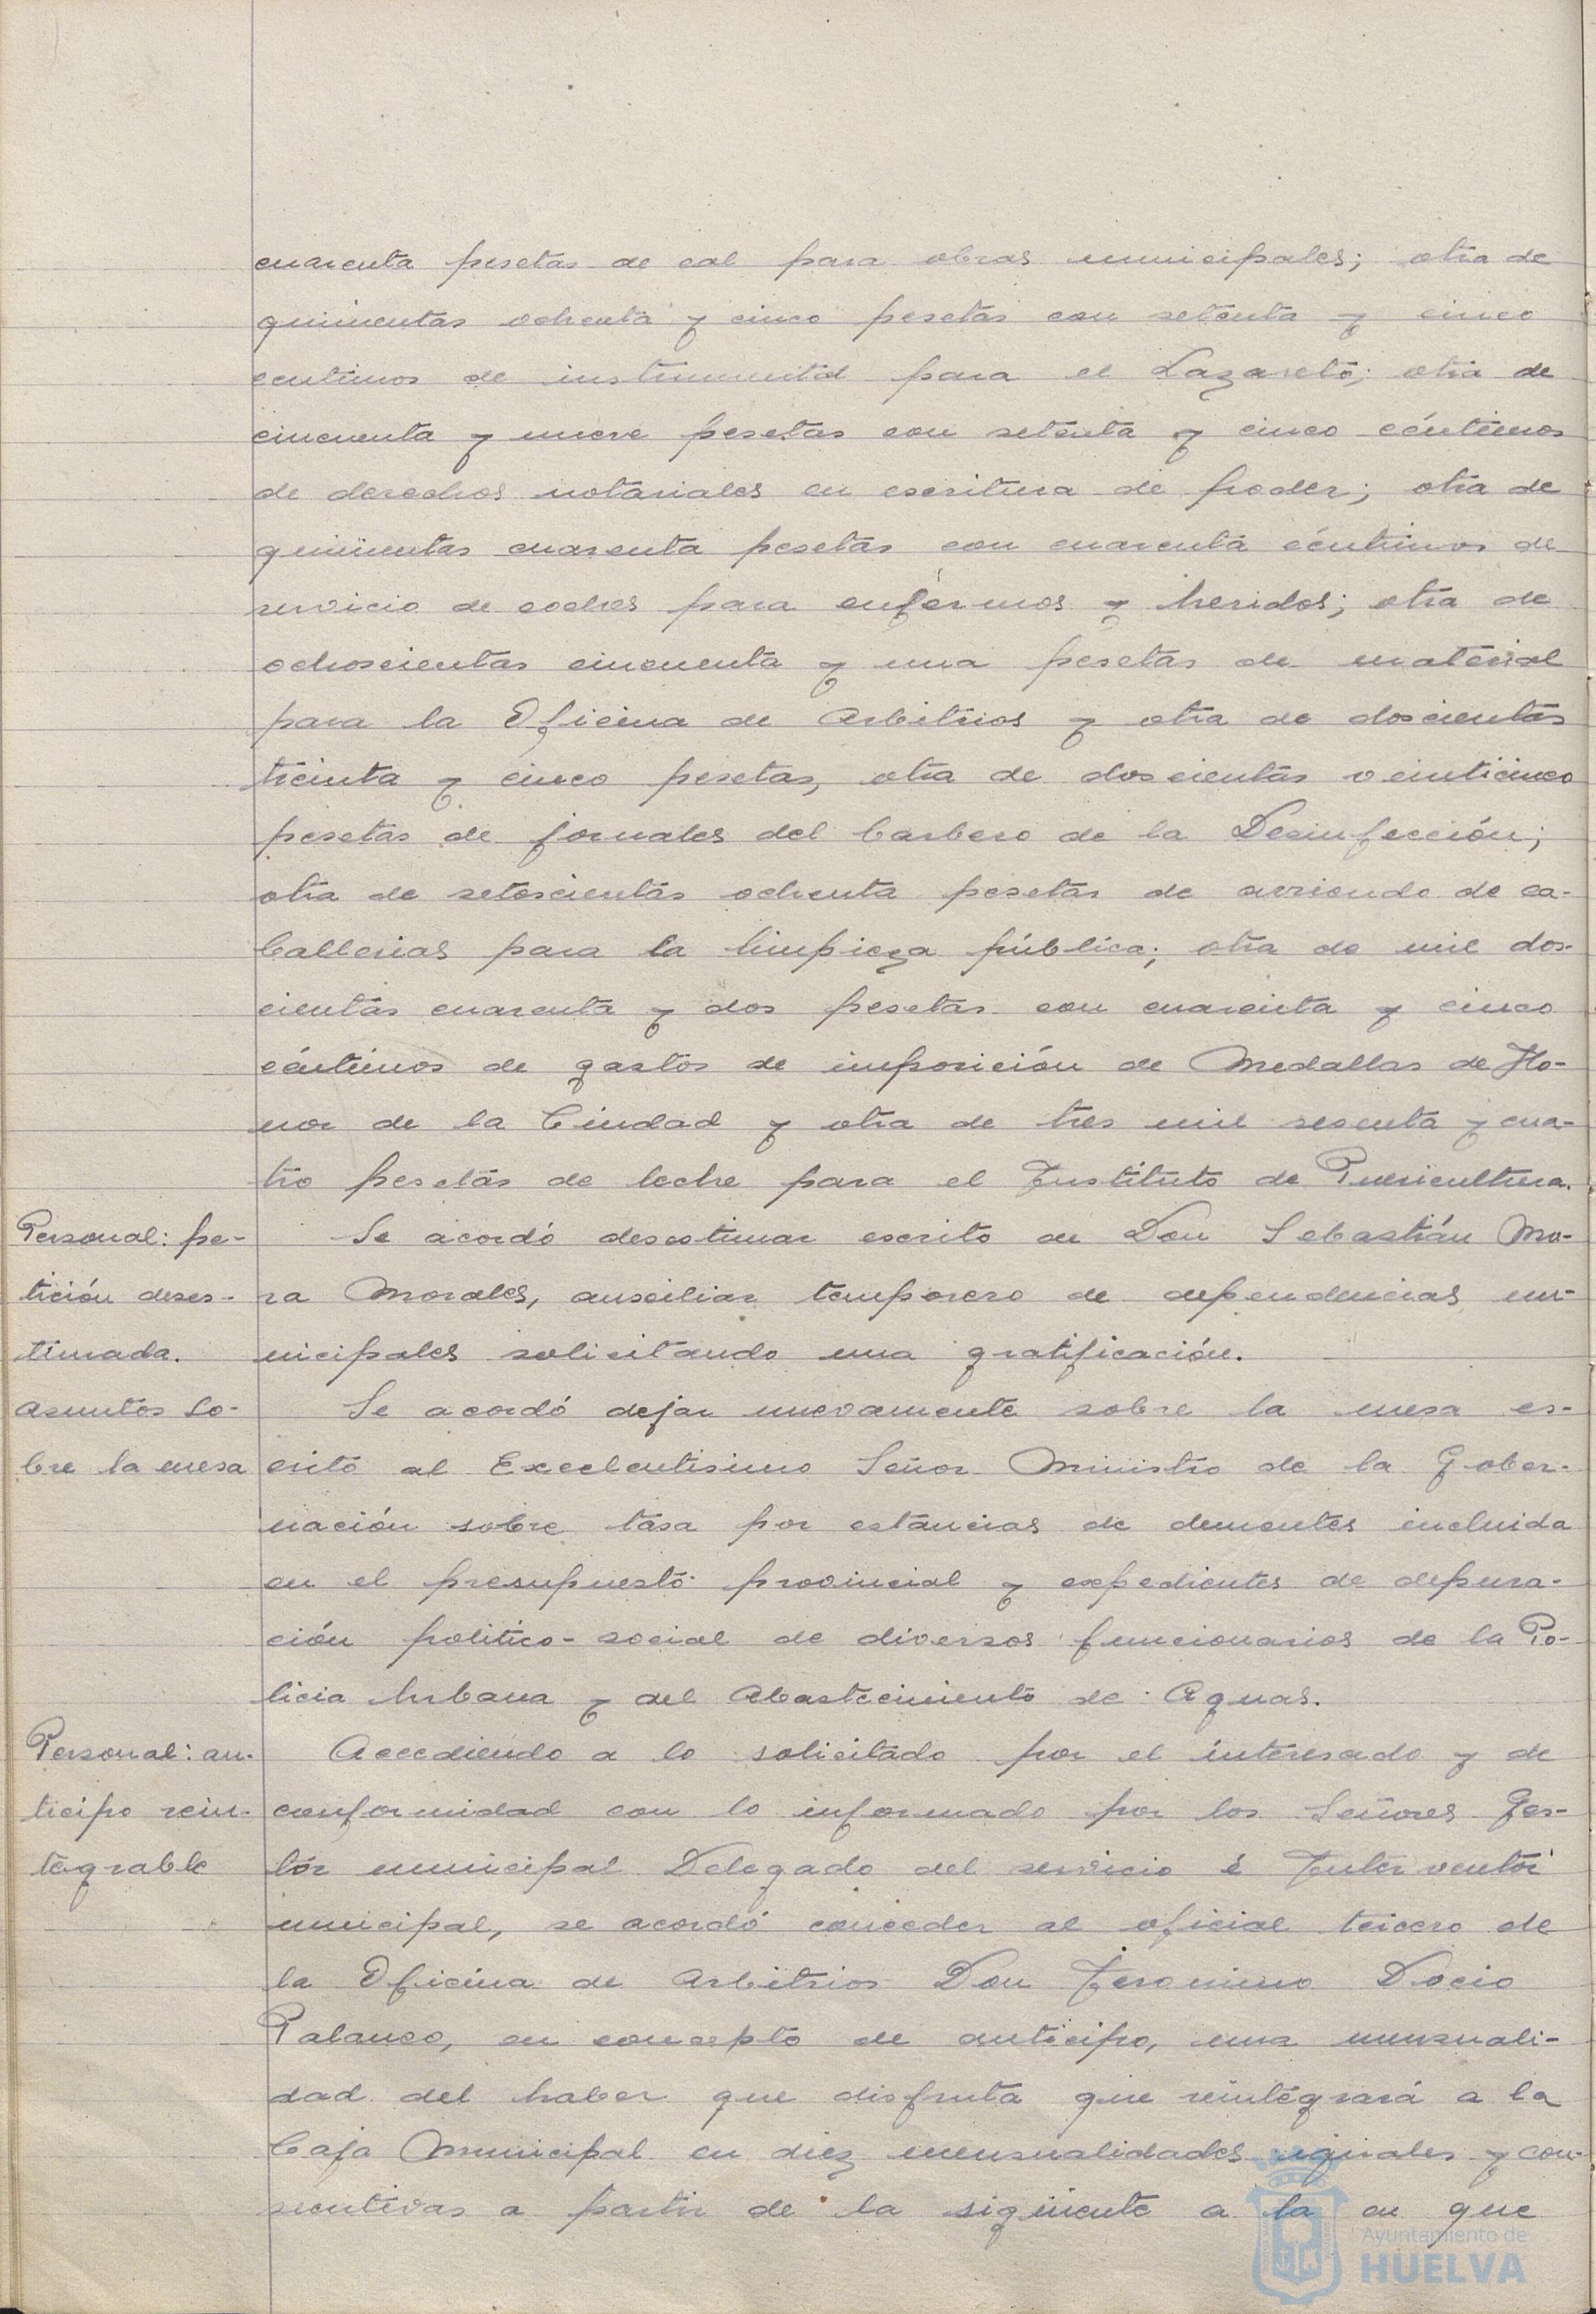 cuarenta pesetas de cal para obras municipales; otra de
quinientas ochenta y cinco pesetas con setenta y cinco
centimos de instrumental para el Lazareto; otra de
cincuenta y nueve pesetas con setenta y cinco céntimos
de derechos notariales en escritura de poder; otra de
quinientas cuarenta pesetas con cuarenta céntimos de
servicio de coches para enfermos y heridos; otra de
ochoscientas cincuenta y una pesetas de material
para la Oficina de Arbitrios y otra de doscientas
treinta y cinco pesetas, otra de doscientas veinticinco
pesetas de jornales del barbero de la Desinfección;
otra de setescientas ochenta pesetas de arriendo de ca-
ballerias para la limpieza pública; otra de mil dos-
cientas cuarenta y dos pesetas con cuarenta y cinco
céntimos de gastos de imposición de Medallas de Ho-
nor de la Ciudad y otra de tres mil sesenta y cua-
tro pesetas de leche para el Instituto de Puericultura.
Personal: pe-
tición deses-
timada.
Se acordó desestimar escrito de Don Sebastián Mo-
ra Morales, auxiliar temporero de dependencias mu-
nicipales solicitando una gratificación.
Asuntos so-
bre la mesa
Se acordó dejar nuevamente sobre la mesa es-
crito al Excelentisimo Señor Ministro de la Gober-
nación sobre tasa por estancias de dementes incluida
en el presupuesto provincial y expedientes de depura-
ción politico-social de diversos funcionarios de la Po-
licia Urbana y del Abastecimiento de Aguas.
Personal: an-
ticipo rein-
tegrable
Accediendo a lo solicitado por el interesado y de
conformidad con lo informado por los Señores Ges-
tor municipal Delegado del servicio é Interventor
municipal, se acordó conceder al oficial tercero de
la Oficina de Arbitrios Don Jeronimo Docio
Palanco, en concepto de anticipo, una mensuali-
dad del haber que disfruta que reintegrará a la
Caja Municipal en diez mensualidades iguales y con-
secutivas a partir de la sigüiente a la en que
Ayuntamiento de
HUELVA